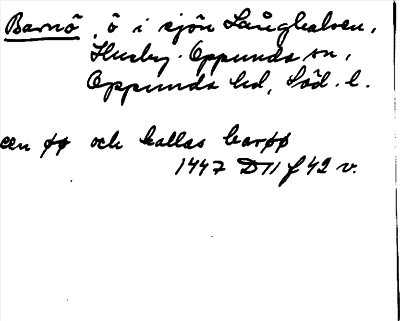 Barnö, ö i sjön Långhalsen,
Husby-Oppunda sn,
Oppunda hd, Söd. l.
een øø och kallas barøø
1447 D 11 f 42 v.